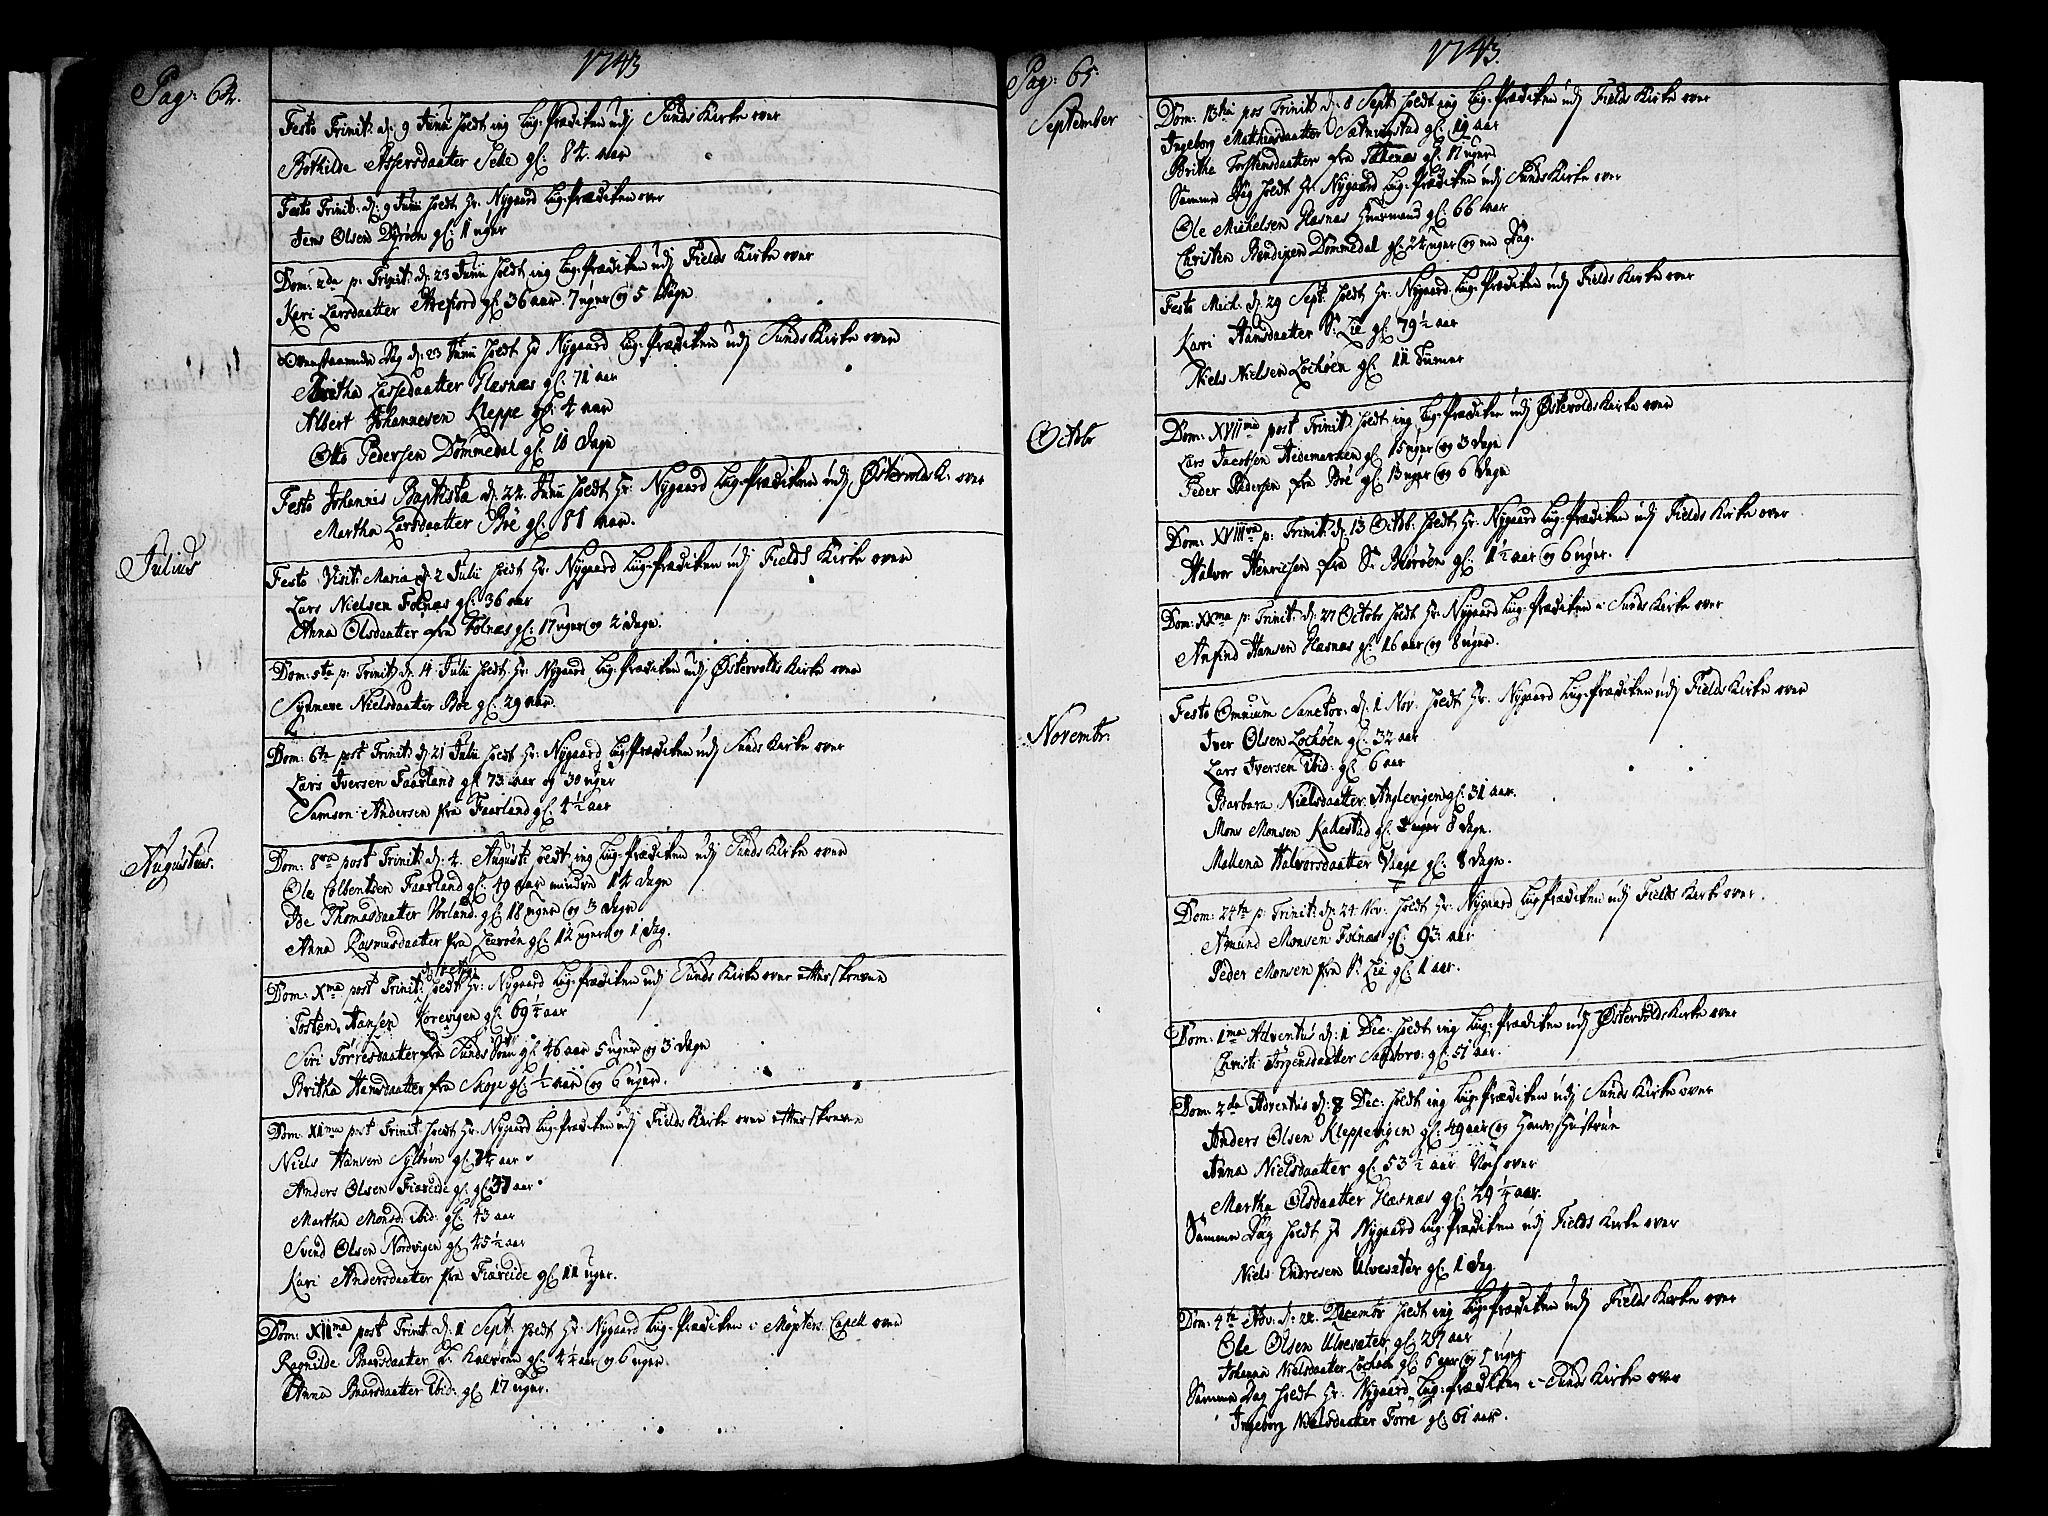 Pag: 64.
1743
Festo Trinit: d: 9 Junii holdt ieg Liig-Prædiken udj Sunds Kirke over
Bothilde Assersdaatter Sele gl: 84. aar
Festo Trinit: d: 9 Junii holdt Hr: Nygaard Liig-Prædiken over
Jens Olsen Dyrøen gl: 11 uger
Dom: 2da p: Trinit: d: 23 Junii holdt ieg Liig-Prædiken udj Fields Kirke over
Kari Larsdaatter Arefiord gl: 36 aar. 7 uger og 5 Dage
Ovenstaaende Dag d: 23 Junii holdt Hr Nygaard Liig-Prædiken udj Sunds Kirke over
Britha Lassedaatter Glæsnæs gl: 71 aar
Albert Johannesen Kleppe gl: 4 aar
Otto Pedersen Dommedal gl: 10 Dage
Festo Johannis Baptistæ d: 24. Junii holdt Hr: Nygaard Liig-Prædiken udj Østervolds K: over
Martha Larsdaatter Bøe gl: 81 aar.
Julius
Festo Visit: Mariæ d: 2 Julii holdt Hr: Nygaard Liig-Prædiken udj Fields Kirke over
Lars Nielsen Folnæs gl: 36 aar
Anna Olsdaatter fra Folnæs gl: 17 uger og 2 Dage.
Dom: 5ta p: Trinit: d: 14 Julii holdt Hr: Nygaard Liig-Prædiken udj Østervolds Kirke over
Synneve Nielsdaatter Bøe gl: 29 aar.
Dom: 6ta post Trinit: d: 21 Julii holdt Hr: Nygaard Liig-Prædiken udj Sunds Kirke over
Lars Iversen Faarland gl: 73 aar og 30 uger
Samson Andersen fra Faarland gl: 4½ aar
Augustus.
Dom: 8va post Trinit: d: 4. Augusti holdt ieg Liig-Prædiken udj Sunds Kirke over
Ole Colbentsen Faarland gl: 49 aar mindre 14 Dage
Thomasdaatter Vorland gl: 18 uger og 3 Dage
Anna Rasmusdaatter fra Leerøen gl: 12 uger og 1 Dag.
Dom: Xma post Trinit: holdt Hr: Nygaard Liig-Prædiken udj Sunds Kirke over efterskrevne
Tosten Hansen Kørevigen gl: 69½ aar
Siri Torresdaatter fra Sunds gl: 46 aar 5 uger og 3 Dage
Britha Hansdaatter fra Skoge gl: ½ aar og 6 uger.
Dom: XIma post Trinit: holdt Hr: Nygaard Liig-Prædiken udj Fields Kirke over efterskrevne
Niels Hansen Syltøen gl: 74 aar
Anders Olsen Fiæreide gl: 37 aar
Martha Monsd: ibid: gl: 43 aar
Svend Olsen Nordvigen gl: 45½ aar
Kari Andersdaatter fra Fiæreide gl: 11 uger.
Dom: XIIma post Trinit: d: 1 Sept: holdt Hr: Nygaard Liig-Prædiken i Møgsters Capell over
Ragnilde Baarsdaatter L: Kalsøen gl: 4¼ aar og 6 uger.
Anna Baarsdaatter ibid: gl: 17 uger.
Pag: 65
1743.
September
Dom: 13tia pos Trinit: d: 8 Sept: holdt ieg Liig-Prædiken udj Fields Kirke over
Ingeborg Mathiasdaatter Sætingstad gl: 19 aar
Britha Torstensdaatter fra gl: 17 uger
Samme Dag holdt Hr: Nygaard Liig-Prædiken udj Sunds Kirke over
Ole Michelsen Glæsnæs Huusmand gl: 66 aar
Christen Bendixen Dommedal gl: 24 uger og en Dag.
Festo Mich: d: 29 Sept: holdt Hr: Nygaard Liig-Prædiken udj Fields Kirke over
Kari Hansdaatter S: Lie gl: 79½ aar
Niels Nielsen Lochøen gl: 11 Timer
Octobr
Dom: XVIIma post Trinit: holdt ieg Liig-Prædiken udj Østervolds Kirke over
Lars Jacobsen Hedemarken gl: 15 uger og 3 Dage
Peder Pedersen fra Bøe gl: 13 uger og 6 Dage
Dom: XVIIIva p: Trinit: d: 13 Octob: holdt Hr: Nygaard Liig-Prædiken udj Fields Kirke over
Halvor Henrichsen fra S: Biørøen gl: 1½ aar og 6 uger.
Dom: XXma p: Trinit: d: 27 Octobr holdt Hr: Nygaard Liig-Prædiken i Sunds Kirke over
Anfind Hansen Glæsnæs gl: 16 aar og 8 uger.
Novembr:
Festo Omnium Sanctor: d: 1 Nov: holdt Hr: Nygaard Liig-Prædiken udj Fields Kirke over
Iver Olsen Lochøen gl: 32 aar
Lars Iversen ibid: gl: 6 aar
Barbara Nielsdaatter Anglevigen gl: 31 aar.
Mons Monsen Kallestad gl: uger 8 Dage.
Mallena Halvorsdaatter Vaage gl: 8 Dage.
Dom: 24ta p: Trinit: d: 24 Nov: holdt Hr: Nygaard Liig-Prædiken udj Fields Kirke over.
Amund Monsen Folnæs gl: 93 aar
Peder Monsen fra S: Lie gl: 1 aar.
Dom: 1ma Adventus d: 1 Dec: holdt ieg Liig-Prædiken udj Østervolds Kirke over
Christi Jørgensdaatter Sangbroe gl: 51 aar.
Dom: 2da Adventus d: 8 Dec: holdt ieg Liig-Prædiken udj Sunds Kirke over
Anders Olsen Kleppevigen gl: 49 aar og Hans Hustrue
Anna Nielsdaatter gl: 53½ aar Noch over
Martha Olsdaatter Glæsnæs gl: 29¼ aar.
Samme Dag holdt Hr Nygaard Liig-Prædiken udj Fields Kirke over
Niels Endresen Ulvesæter gl: 1 Dag
Dom: 4ta Adv: d: 22 Decembr holdt ieg Liig-Prædiken udj Fields Kirke over
Ole Olsen Ulvesæter gl: 27 aar
Johanna Nielsdaatter Lochøen gl: 6 aar og 5 uger
Samme Dag holdt Hr: Nygaard Liig-Prædiken i Sunds Kirke over
Ingeborg Nielsdaatter Torre gl: 61 aar.